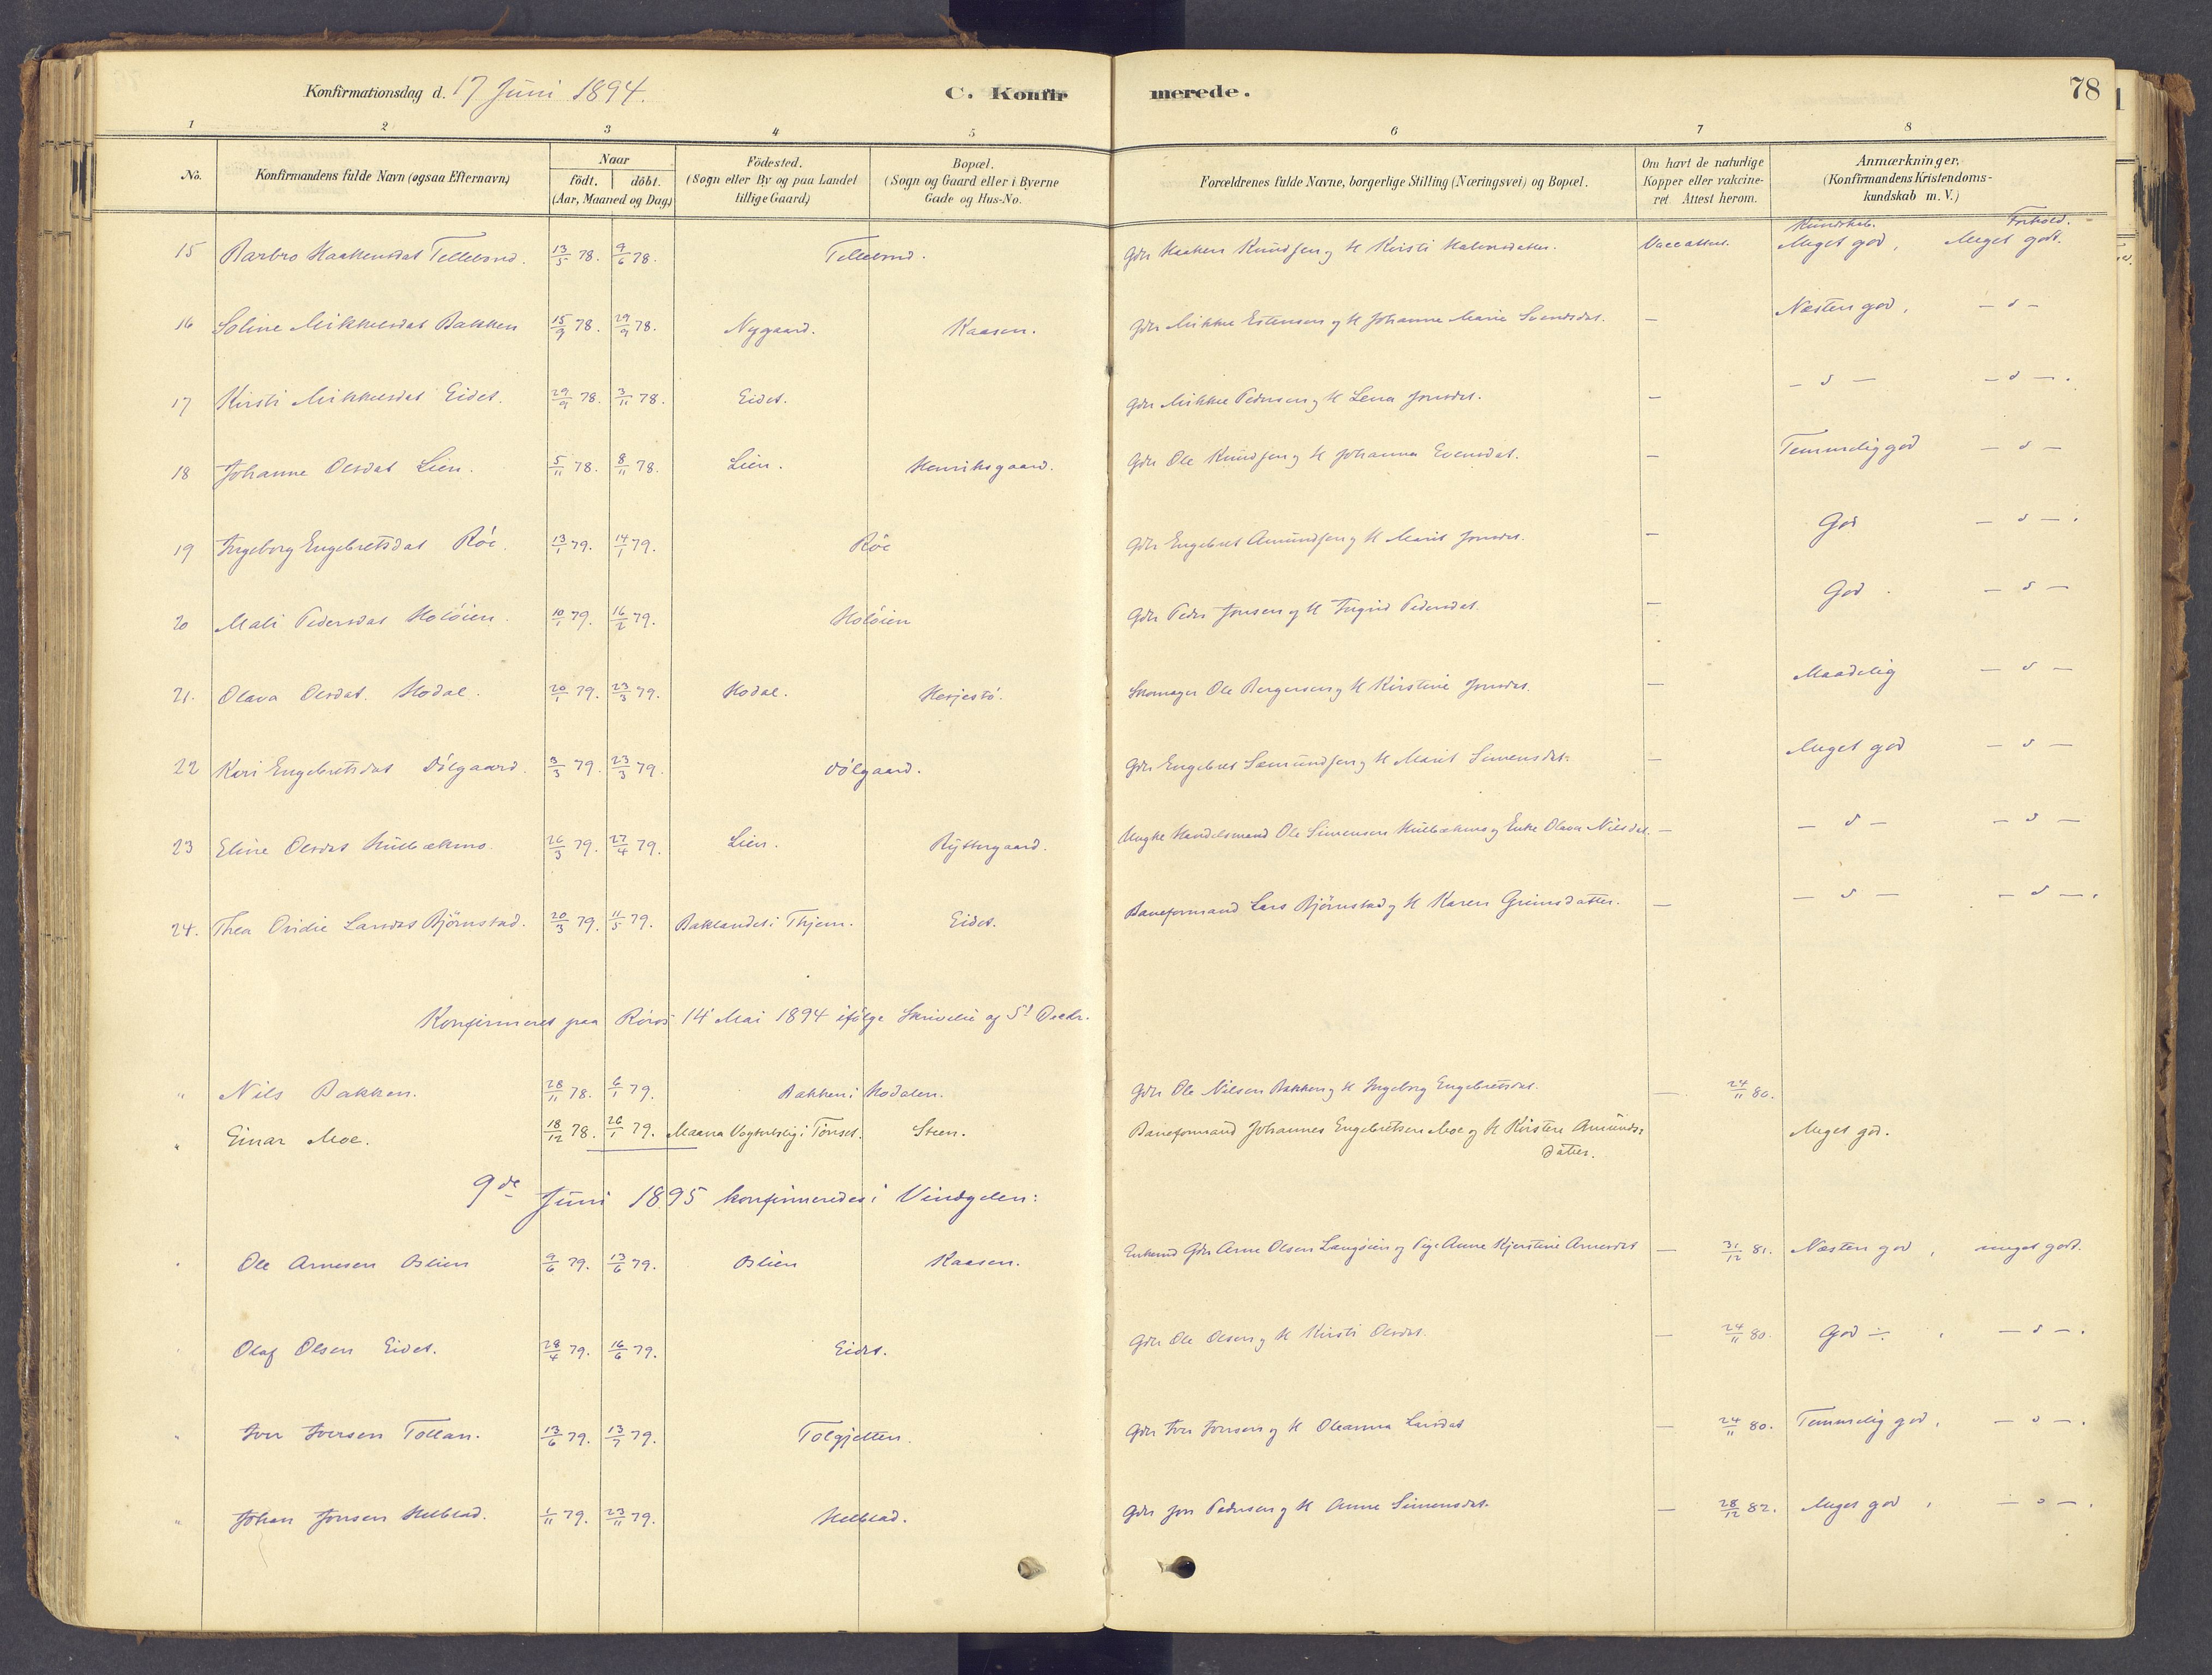 Konfirmationsdag d. 17 Juni 1894.
C. Konfirmerede.
78
1 2 3 4 5 6 7 8
No.
Konfirmandens fulde Navn (ogsaa Efternavn)
Naar
födt. döbt.
(Aar, Maaned og Dag)
Födested.
(Sogn eller By og paa Landet
tillige Gaard)
Bopæl.
(Sogn og Gaard eller i Byerne
Gade og Hus-No.
Forældrenes fulde Navne, borgerlige Stilling (Næringsvei) og Bopæl.
Om havt de naturlige
Kopper eller vakcine-
ret Attest herom.
Anmærkninger.
(Konfirmandens Kristendoms-
kundskab m. V.)
Kundskab. Forhold.
15 Barbro Haakensdat 13/5 78. 9/6 78. Gdr Haaken Knudsen og H Kirsti Vaccattest. Meget god, Meget godt.
16 Soline Mikkelsdat Bakken 15/9 78. 29/9 78. Nygaard. Kaasen. Gdr Mikkel Estensen og H Johanne Marie Svendsdat. — Næsten god, — d —
17 Kirsti Mikkelsdat Eidet. 29/9 78. 3/11 78. Eidet. Gdr Mikkel Pedersen og H Lena Jonsdat. — — d — — d —.
18 Johanne Olsdat Lien. 5/11 78. 8/11 78. Lien. Henriksgaard. Gdr Ole Knudsen og H Johanna Evensdat. — Temmelig god — d —
19 Ingeborg Engebretsdat Röe. 13/1 79. 14/1 79. Röe Gdr Engebret Amundsen og H Marit Jonsdat. — God — d —.
20 Mali Pedersdat Holöien. 10/1 79. 16/2 79. Holöien Gdr Peder Jonsen og H Ingrid Pedersdat. — God. — d —
21. Olava Olsdat. Hodal. 20/1 79. 23/3 79. Hodal. Hesjestö. Skomager Ole Bergersen og H Kirstine Jonsdat. — Maadelig — d —
22 Kari Engebretsdat Dölgaard. 3/3 79. 23/3 79. Dölgaard. Gdr Engebret Semundsen og H Marit Simensdat. — Meget god — d —
23 Eline Olsdat Hulbækmo. 26/3 79. 27/4 79. Lien. Ryttergaard. Handelsmand Ole Simensen Hulbækmo og Enke Olava Nilsdat. — — d — — d —
24. Thea Ovidie Larsdat Björnstad. 20/3 79. 11/5 79. Baklandet i Thjem. Eidet. Baneformand Lars Björnstad og H Karen Grimsdatter. — — d — — d —.
Konfirmeret paa Röros 14' Mai 1894 ifölge Skrivelse af
" Nils Bakken. 28/11 78. 6/1 79. Bakken i Hodalen. Gdr Ole Nilsen Bakken og H Ingeborg Engebretsdat. — 24/11 80.
" Einar Moe. 18/12 78. 26/1 79. Maana Vogterbolig i Tönset. Steen. Baneformand Johannes Engebretsen Moe og H Kirsten Amunds-
datter. Meget god.
9de Juni 1895 konfirmeredes i Vingelen:
" Ole Arnesen Oslien 9/6 79. 13/6 79. Oslien Kaasen. Enkemd Gdr Arne Olsen Langöien og Pige Anne Kjerstine Arnesdat — 31/12 81. Næsten god, meget godt.
Olaf Olsen Eidet. 28/4 79. 16/6 79. Eidet. Gdr Ole Olsen og H Kirsti Olsdat. — 24/11 80. God ÷. — d —.
" Iver Iversen Tollan. 13/6 79. 13/7 79. Tolgjetten. Gdr Iver Jonsen og H Oleanna Larsdat — 24/11 80. Temmelig god, — d —.
" Johan Jonsen Helblad. 1/11 79. 23/11 79. Helblad. Gdr Jon Pedersen og H Anne Simensdat. — 28/12 82. Meget god, — d —.